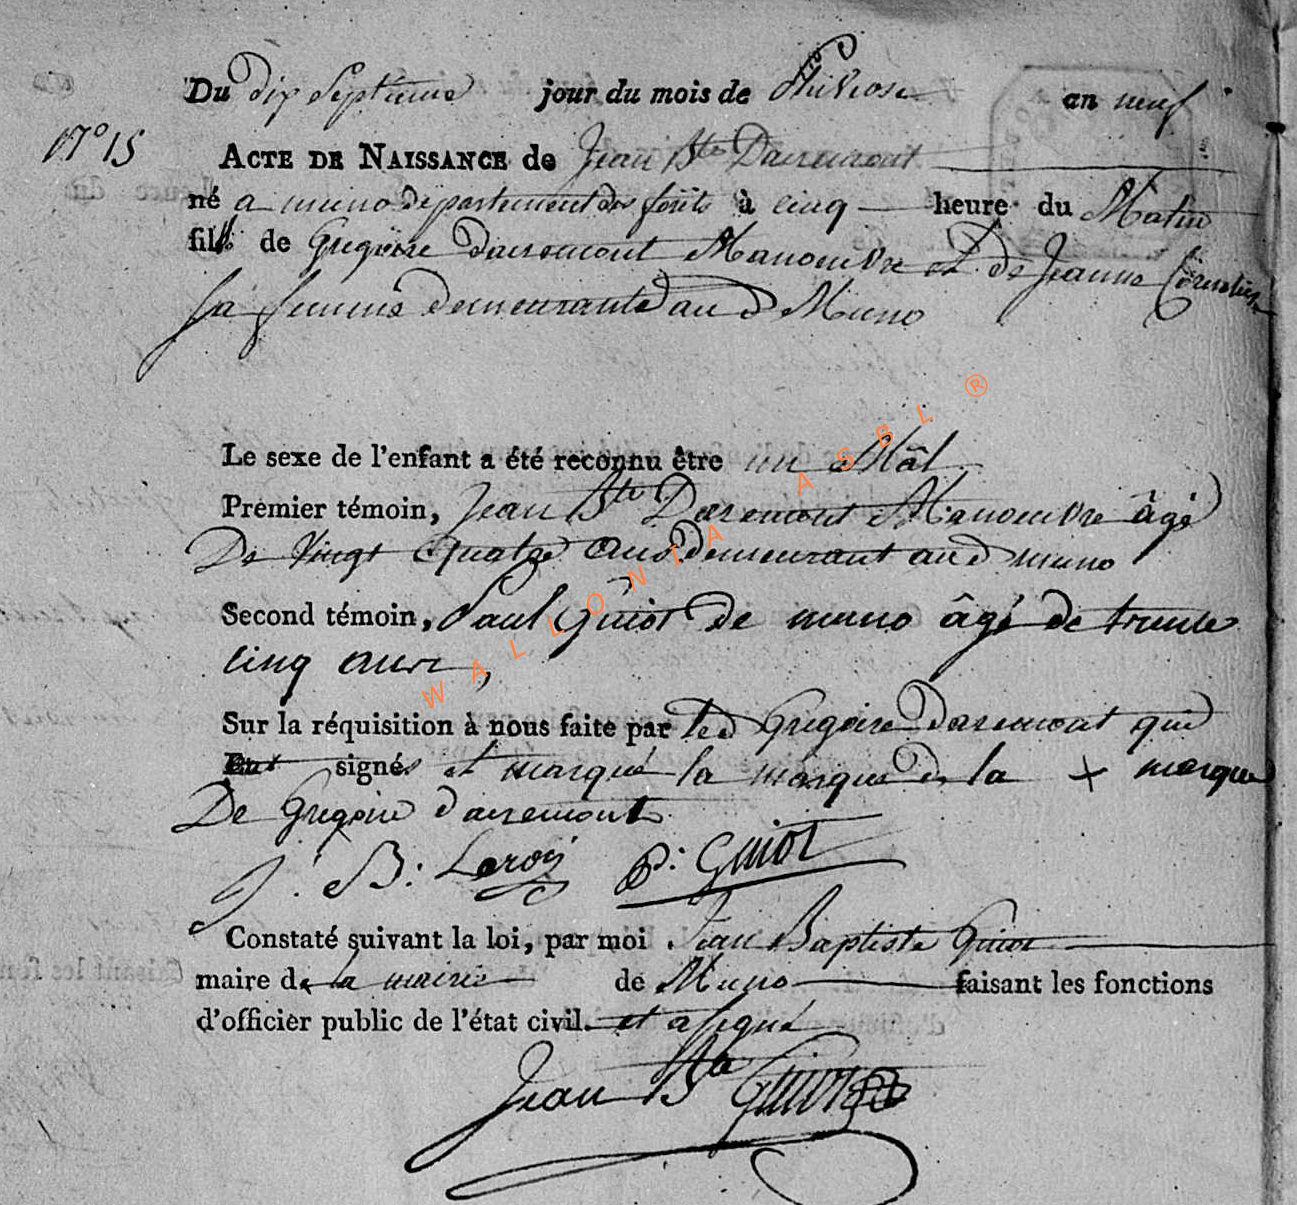 Du dix Septieme jour du mois de Pluviose an neuf
N° 15
ACTE DE NAISSANCE de Jean Bte Dairemont
né a muno departement des forêts à cinq heure du Matin
fils de Gregoire dairemont Manoeuvre et de Jeanne
sa femme demeurante au d Muno
Le sexe de l'enfant a été reconnu être un Mâl
Premier témoin, Jean Bte Daremont Manoeuvre âgé
De Vingt quatre ans demeurant au d muno
Second témoin, Paul Guiot de muno âgé de trente
cinq ans
Sur la réquisition à nous faite par led Gregoire daremont qui
signés et marqué la marque de la + marque
De Gregoire dairemont
J. B. Leroy P. Guiot
Constaté suivant la loi, par moi Jean Baptiste Guiot
maire de la mairie de Muno faisant les fonctions
d'officier public de l'état civil. et a signé
Jean Bte Guiot
WALLONIA ASBL ®